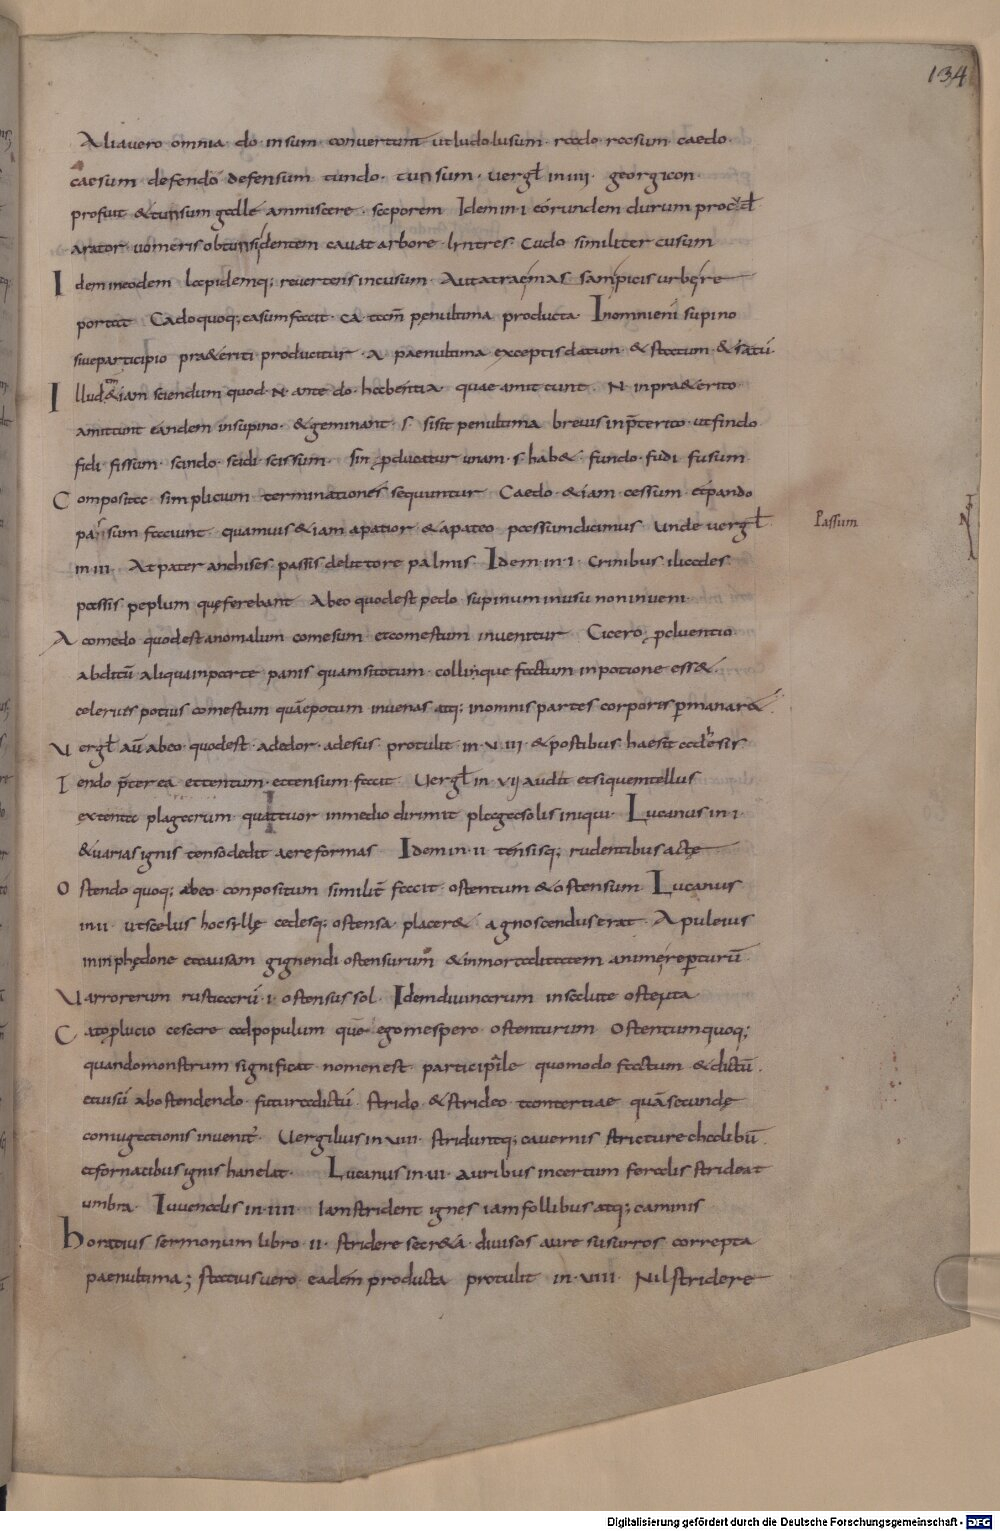 134
Alia uero omnia · do · in sum · conuertunt ut ludo lusum · rado rasum caedo ·
caesum · defendo defensum tundo · tunsum · uergł in iiii · georgicon ·
profuit & tunsum gallę ammiscere · saporem Idem in · i · eorundem durum procudit
arator · uomeris obtunsi dentem cauat arbore · lintres · Cudo similiter cusum
Idem in eodem lapidemq; reuertens incusum · Aut atrae mas sam picis urbe re
portat Cado quoq; casum facit · ca tam̄ penultima producta · In omni enī supino
siue participio pra&eriti producitur · a paenultima exceptis datum · & statum & satū ·
Illud &iam sciendum quod · N · ante do · habentia · quae amittunt · N · in pra&erito
amittunt eandem in supino · & geminant · s · si sit penultima breuis in p̄terito · ut findo
fidi fissum · scindo · scidi scissum · Sin producatur unam · s · hab& · fundo · fudi fusum
Composita simplicium terminationes sequuntur Caedo & iam cessum · et pando
pansum faciunt · quamuis & iam a patior · & a pateo passum dicimus Unde uergł
Passum
in iii · At pater anchises passis de littore palmis Idem · in · i · Crinibus iliades
passis peplum quę ferebant A beo quod est pedo · supinum in usu non inueni ·
A comedo quod est anomalum comesum · et comestum inuenitur Cicero p cluentio
abditū aliqua in parte panis quam si totum · collinque factum in potione ess& ·
celerius potius comestum quā epotum in uenas atq; in omnis partes corporis p̱manar&
Uergł aū ab eo · quod est · adedor · adesus protulit · in · VIII · & postibus haesit adesis
Tendo p̄terea et tentum · et tensum · facit Uergł in VII audiit et siquem tellus
extenta plagarum · quattuor in medio dirimit plaga solis iniqui · Lucanus in · i ·
& uarias ignis tenso dedit aere formas Idem in · ii tensisq; rudentibus actę
Ostendo quoq; ab eo conpositum similit̄ facit ostentum & ostensum Lucanus
in ii ut scelus hoc syllę cedesq; ostensa placer& agnoscendus erat · Apuleius
in in phędone et causam gignendi ostensurum & inmortalitatem animę repturū
Uarro rerum rusticarū · i · ostensus sol Idem diuinarum in salute ostenta
Cato p lucio cesare ad populum quo ego me spero ostenturum Ostentum quoq;
quando monstrum significat nomen est participiale quomodo factum & dictū ·
et uisū ab ostendendo · futura dictū strido & strideo tam tertiae quā secundę
coniugationis inuenit̄ · Uergilius in VIII · stridunt q; cauernis stricture chalibū ·
et fornacibus ignis hanelat · Lucanus in · VI · auribus incertum feralis strideat
umbra · Iuuenalis in · iiii · Iam strident ignes iam follibus atq; caminis
horatius sermonum libro · ii · stridere secr&a diuisos aure susurros correpta
paenultima; statius uero eadem producta protulit in · VIIII · Nil stridere
Digitalisierung gefördert durch die Deutsche Forschungsgemeinschaft - DFG